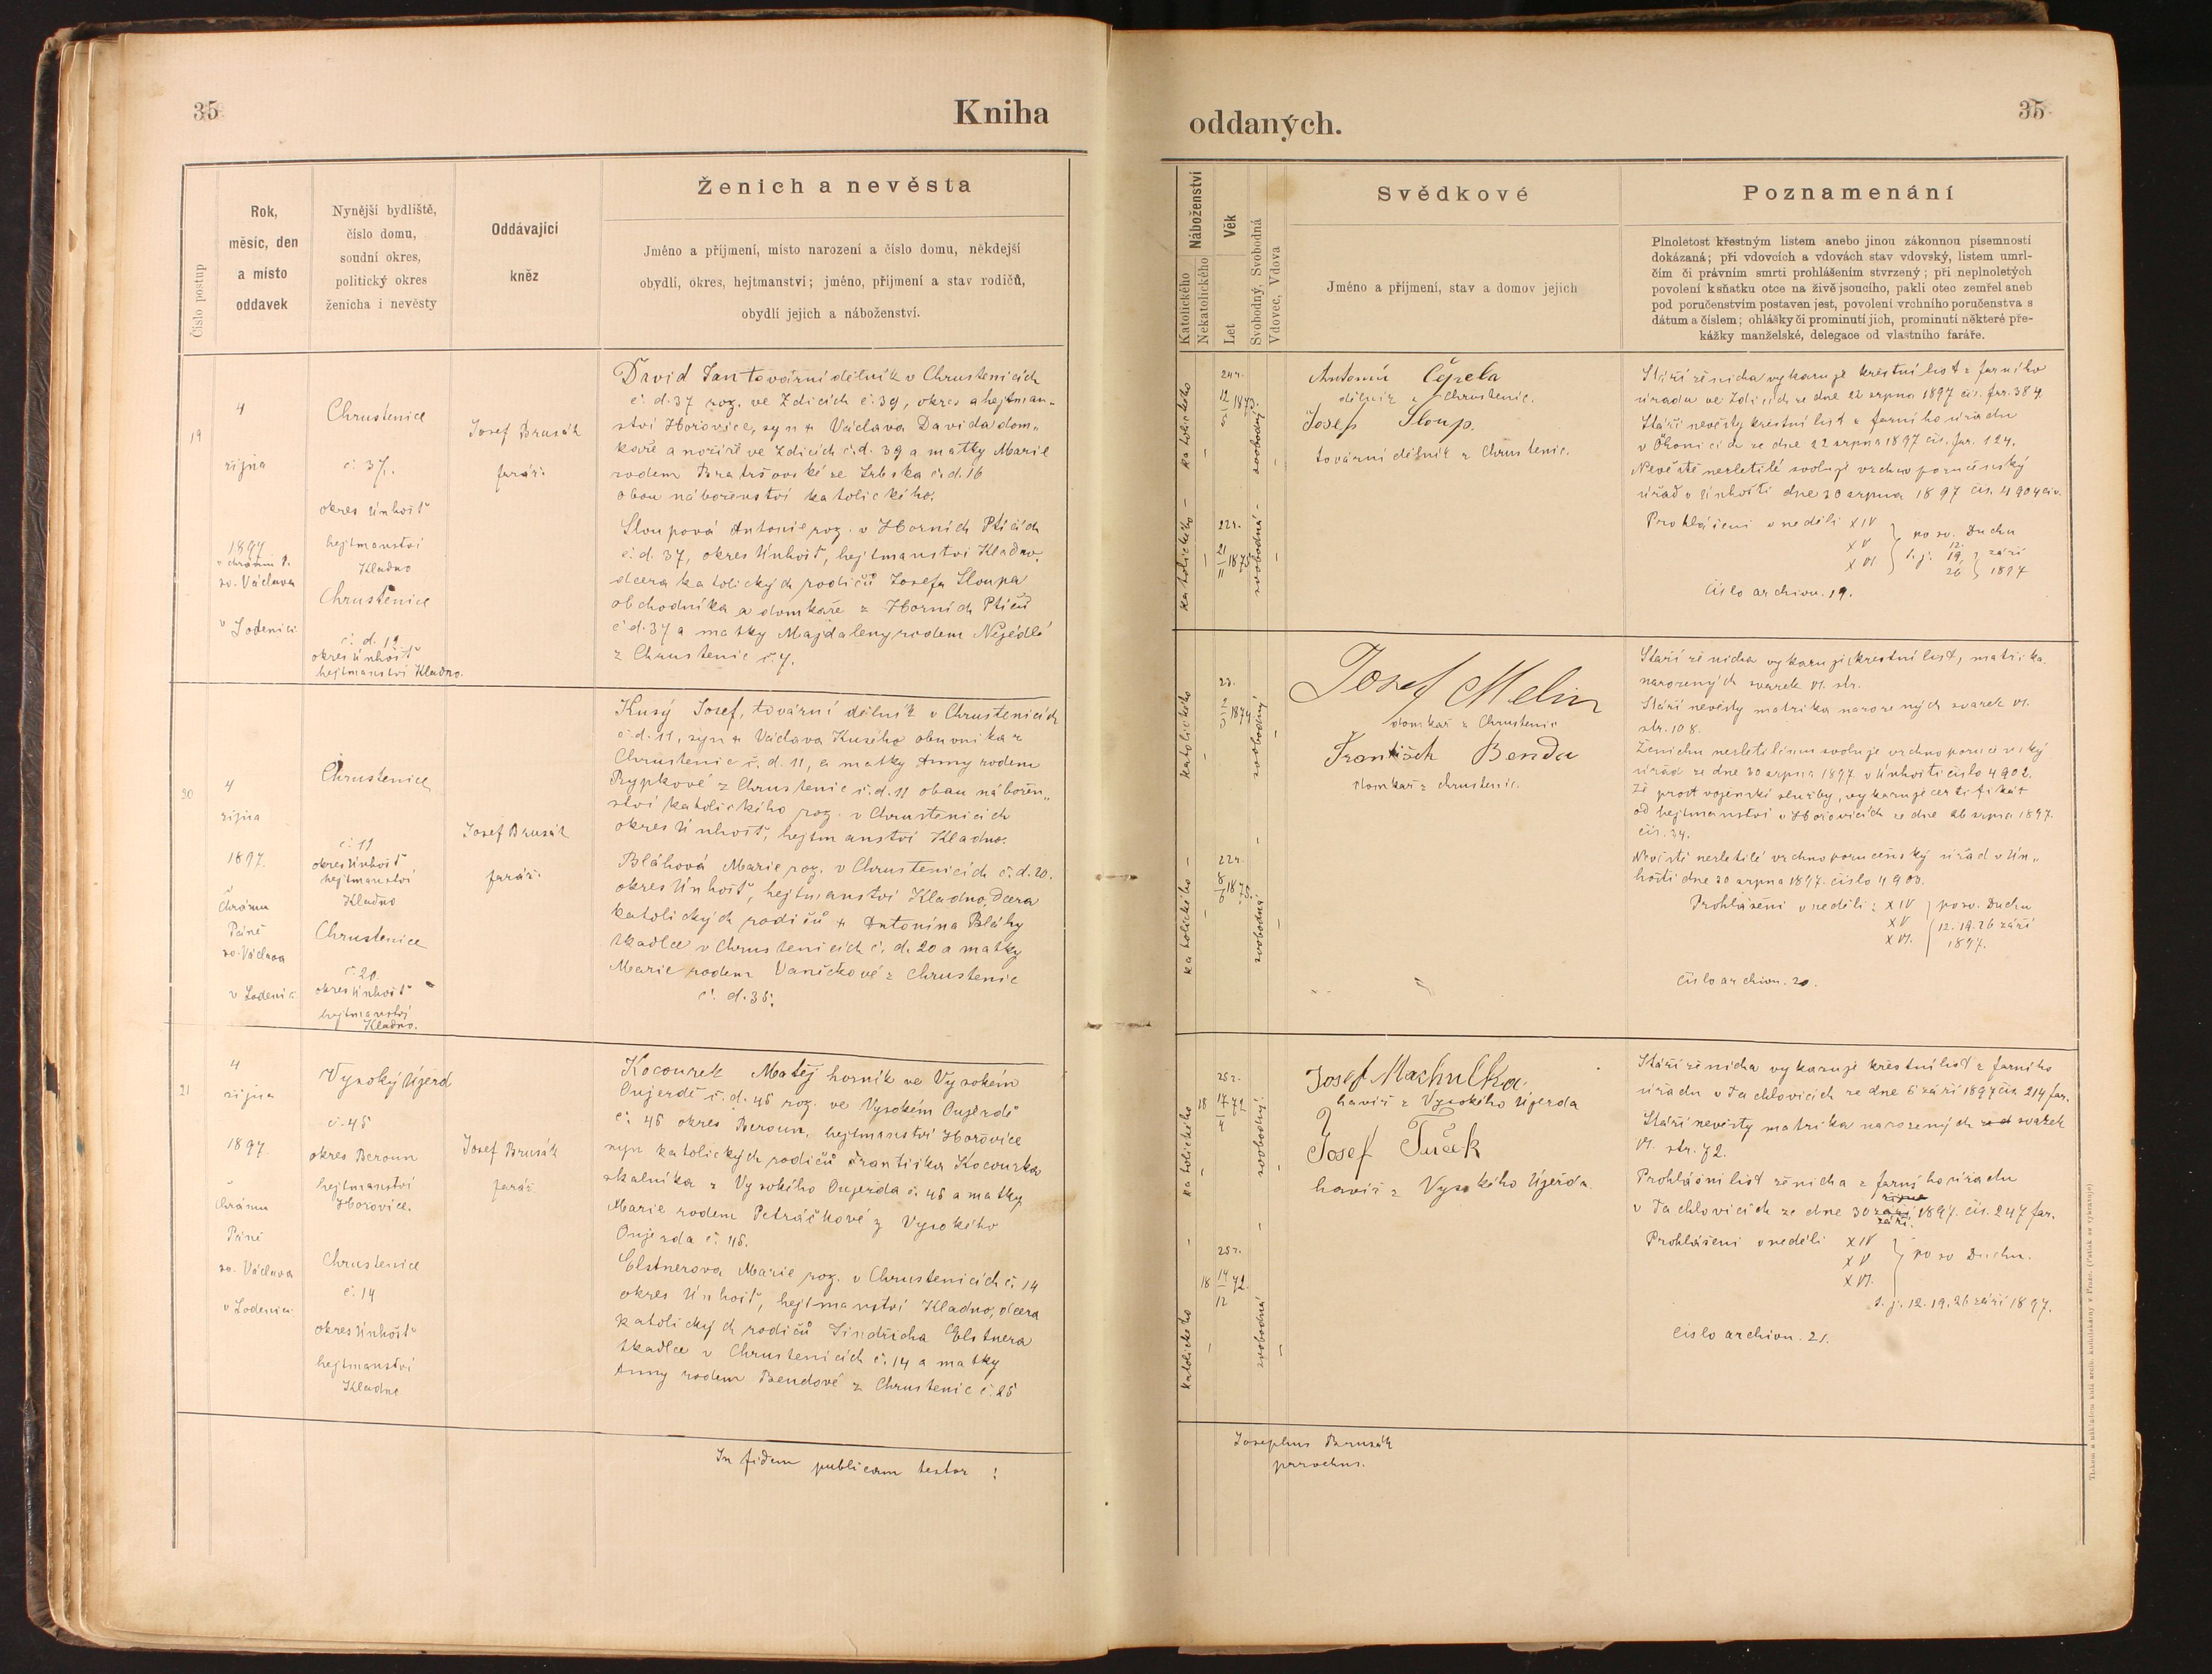 35
Kniha
Ženich a nevěsta
Číslo postup
Rok,
měsíc, den
a místo
oddavek
Nynější bydliště,
číslo domu,
soudní okres,
politický okres
ženicha i nevěsty
Oddávající
kněz
Jméno a příjmení, místo narození a číslo domu, někdejší
obydlí, okres, hejtmanství; jméno, příjmení a stav rodičů,
obydlí jejich a náboženství.
19
4
října
1897
v chrámu P.
sv. Václava
v Lodenici
Chrustenice
č. 37.
okres Únhošť
hejtmanství
Kladno
Chrustenice
č. d. 19
okres Únhošť
hejtmanství Kladno.
Josef Brusák
farář.
David Jan tovární dělník v Chrustenicích
č. d. 37 roz. ve Zdicích č. 39, okres a hejtman-
ství Hořovice, syn + Václava Davida dom-
káře a nožíře ve Zdicích č. d. 39 a matky Marie
rodem Bratršovské ze Srbska č. d. 16
obou náboženství katolického.
Sloupová Antonie roz. v Horních Pticích
č. d. 37, okres Únhošť, hejtmanství Kladno.
dcera katolických rodičů Josefa Sloupa
obchodníka a domkáře z Horních Ptic
č. d. 37 a matky Majdaleny rodem Nejedlé
z Chrustenic č. 7.
20
4
října
1897.
Chrámu
Páně
sv. Václava
v Lodenici
Chrustenice
č. 11
okres Únhošť
hejtmanství
Kladno
Chrustenice
č. 20.
okres Únhošť
hejtmanství
Kladno.
Josef Brusák
farář.
Kusý Josef, tovární dělník v Chrustenicích
č. d. 11, syn + Václava Kusého obuvníka z
Chrustenic č. d. 11, a matky Anny rodem
Rypkové z Chrustenic č. d. 11 obou nábožen-
ství katolického roz. v Chrustenicích
okres Únhošť, hejtmanství Kladno.
Bláhová Marie roz. v Chrustenicích č. d. 20.
okres Únhošť, hejtmanství Kladno, dcera
katolických rodičů + Antonína Bláhy
tkadlce v Chrustenicích č. d. 20 a matky
Marie rodem Vaníčkové z Chrustenic
č. d. 35.
21
4
října
1897
Chrámu
Páně
sv. Václava
v Lodenici
Vysoký Újezd
č. 45
okres Beroun
hejtmanství
Hořovice.
Chrustenice
č. 14
okres Únhošť
hejtmanství
Kladno
Josef Brusák
farář.
Kocourek Matěj horník ve Vysokém
Oujezdě č. d. 45 roz. ve Vysokém Oujezdě
č. 45 okres Beroun, hejtmanství Hořovice
syn katolických rodičů Františka Kocourka
skalníka z Vysokého Oujezda č. 45 a matky
Marie rodem Petráčkové z Vysokého
Oujezda č. 45.
Elstnerova Marie roz. v Chrustenicích č. 14
okres Únhošť, hejtmanství Kladno, dcera
katolických rodičů Jindřicha Elstnera
tkadlce v Chrustenicích č. 14 a matky
Anny rodem Bendové z Chrustenic č. 25
In fidem publicam testor :
35
oddaných.
Náboženství
Katolického
Nekatolického
Věk
Let
Svobodný, Svobodná
Vdovec, Vdova
Svědkové
Jméno a příjmení, stav a domov jejich
Poznamenání
Plnoletost křestným listem anebo jinou zákonnou písemností
dokázaná; při vdovcích a vdovách stav vdovský, listem umrl-
čím či právním smrti prohlášením stvrzený; při neplnoletých
povolení k sňatku otce na živě jsoucího, pakli otec zemřel aneb
pod poručenstvím postaven jest, povolení vrchního poručenstva s
dátum a číslem; ohlášky či prominutí jich, prominutí některé pře-
kážky manželské, delegace od vlastního faráře.
katolického
24 r.
12 1873.
svobodný
katolického
22 r.
21/11 1875
svobodná
Antonín
dělník z Chrustenic.
Josef Sloup.
tovární dělník z Chrustenic.
Stáří ženicha vykazuje křestní list z farního
úřadu ve Zdicích ze dne 22 srpna 1897 čís. far. 389.
Stáří nevěsty křestní list z farního úřadu
v ze dne 22 srpna 1897 čís. far. 124.
Nevěstě nezletilé svoluje vrchno poručenský
úřad v Únhošti dne 30 srpna 1897 čís. 4904 civ.
Prohlášeni v neděli XIV
XV
XVI
po sv. Duchu
t. j. 12. 19. 26 září 1897
Číslo archivu. 19.
katolického
23.
1874
svobodný
katolického
22 r.
8/6 1875.
svobodná
Josef Melin
domkář z Chrustenic
František Benda
domkář z Chrustenic.
Stáří ženicha vykazuje křestní list, matrika
narozených svazek VI. str.
Stáří nevěsty matrika narozených svazek VI.
str. 108.
Ženichu nezletilému svoluje vrchno poručenský
úřad ze dne 30 srpna 1897. v Únhošti číslo 4902.
Že prost vojenské služby, vykazuje certifikát
od hejtmanství v Hořovicích ze dne 26 srpna 1897.
čís. 34.
Nevěstě nezletilé vrchno poručenský úřad v Ún-
hošti dne 30 srpna 1897. číslo 4903.
Prohlášeni v neděli: XIV
XV
XVI.
po sv. Duchu
12. 19. 26 září
1897.
Číslo archivu. 20.
katolického
25 r.
18 17/4 72
svobodný.
katolického
25 r.
18 14/12 72.
svobodná
Josef Machulka.
havíř z Vysokého Újezda
Josef Tuček
havíř z Vysokého Újezda.
Stáří ženicha vykazuje křestní list z farního
úřadu v Tachlovicích ze dne 6 září 1897 čís. 214 far.
Stáří nevěsty matrika narozených svazek
VI. str. 72.
Prohlášní list ženicha z farního úřadu
v Tachlovicích ze dne 30 září 1897. čís. 247 far.
Prohlášeni v neděli XIV
XV
XVI.
po sv Duchu.
t. j. 12. 19. 26 září 1897.
Číslo archivu. 21.
Josephus Brusák
parochus.